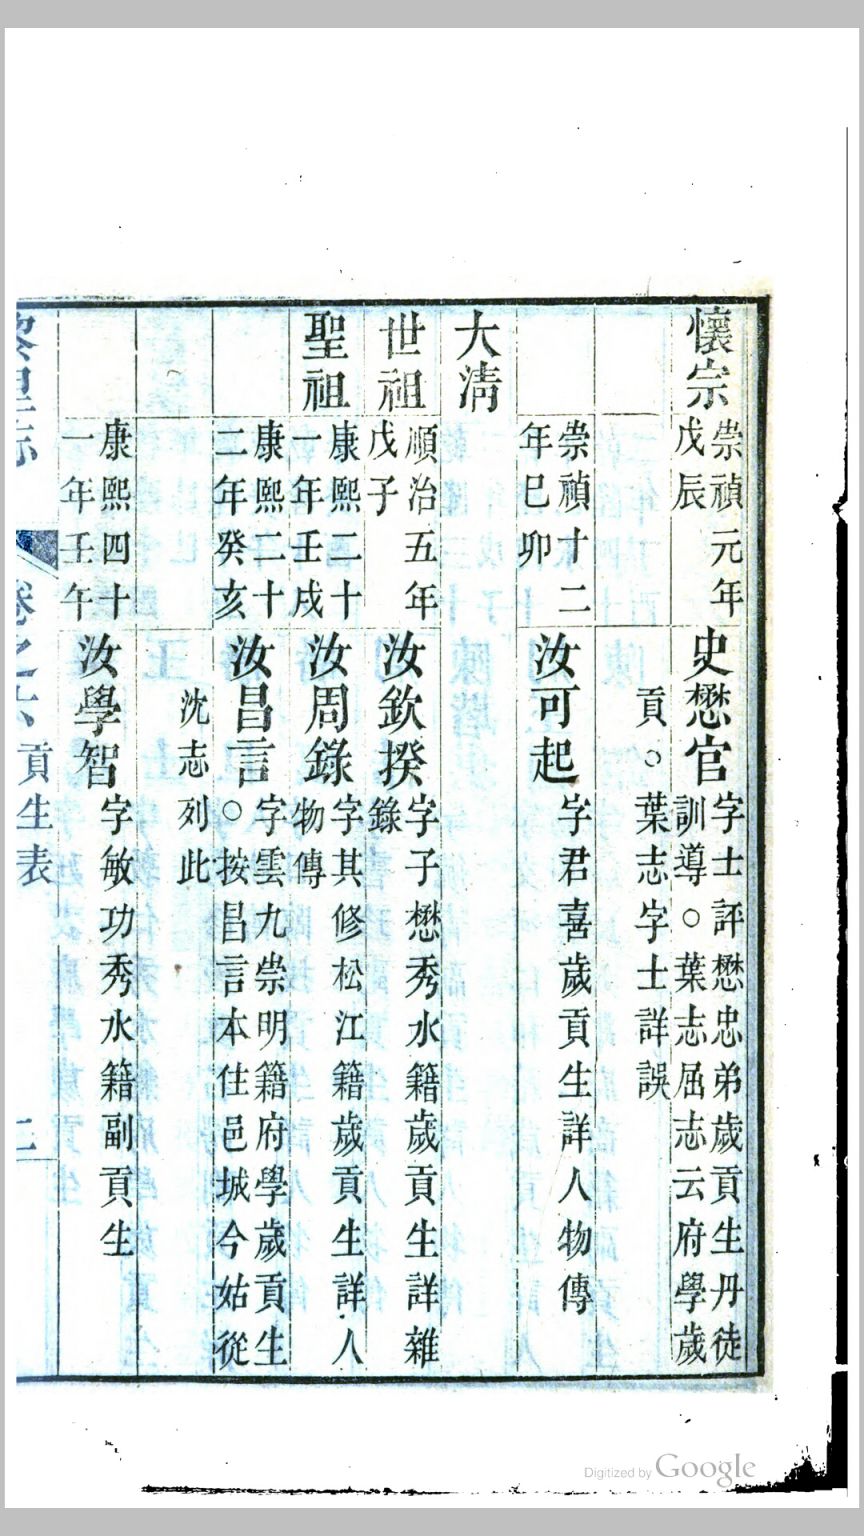 懷宗
崇禎元年
戊辰
史懋官
字士評懋忠弟歲貢生丹徒
訓導○葉志屈志云府學歲
貢○葉志字士詳誤
崇禎十二
年巳卯
汝可起
字君喜歲貢生詳人物傳
大淸
世祖
順治五年
戊子
汝欽揆
字子懋秀水籍歲貢生詳雜
錄
聖祖
康熙二十
一年壬戌
汝周錄
字其修松江籍歲貢生詳人
物傳
康熙二十
二年癸亥
汝昌言
字雲九崇明籍府學歲貢生
○按昌言本住邑城今姑從
沈志列此
康熙四十
一年壬午
汝學智
字敏功秀水籍副貢生
黎里志
卷之六
貢生表
Digitized by Google